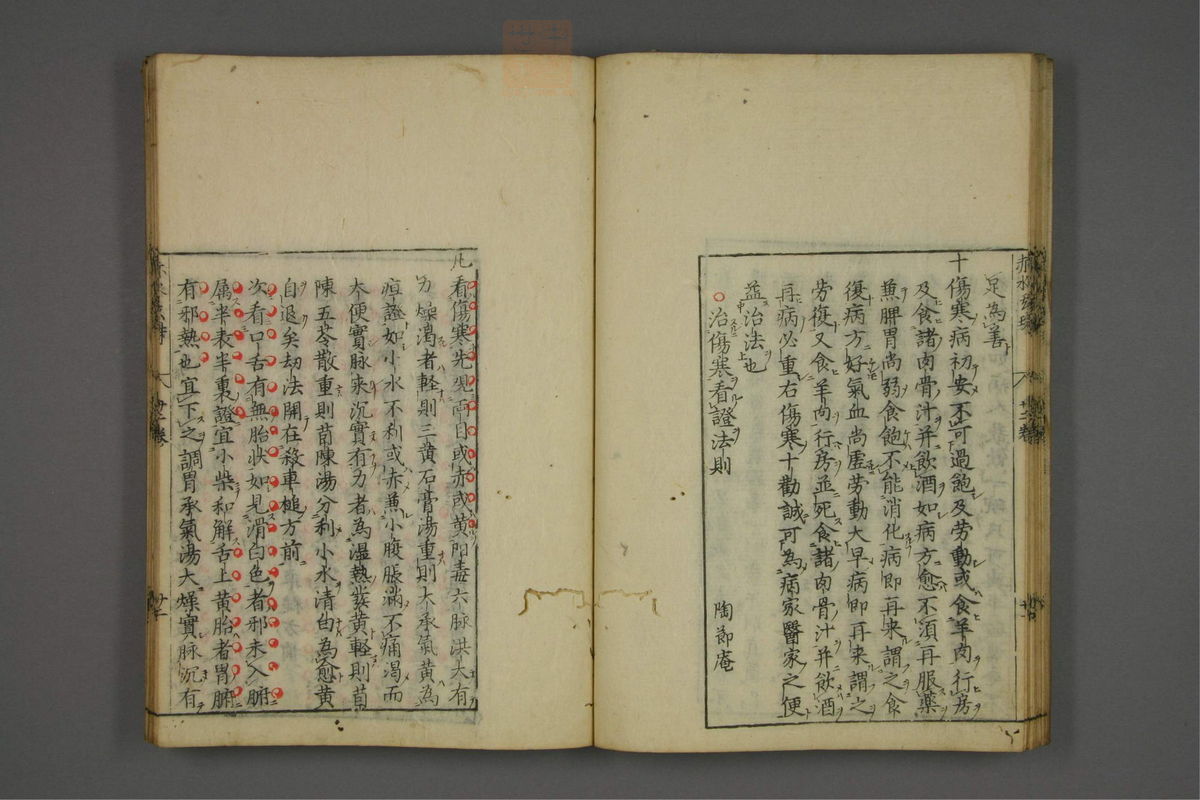 足為善
十傷寒病初安不可過飽及労動或食羊肉行房
及食諸肉骨汁并飲酒如病方愈不須再服藥
蕉脾胃尚弱食飽不能消化病即再来謂之食
復病方好氣血尚虛劳動大早病即再来謂之
劳復又食羊肉行房並死食諸肉骨汁并飲酒
再病必重右傷寒十勸誠可為病家醫家之便
益治法也
治傷寒看證法則
陶節庵
凡看傷寒先覌両目或赤或黄陽毒六脉洪大有
力燥渴者軽則三黄石膏湯重則大承氣黄為
疸證如小水不利或赤蕉小腹脹滿不痛渴而
大便實脉来沉實有力者為湿熱發黄軽則茵
陳五苓散重則茵陳湯分利小水清白為愈黄
自退矣劫法開在殺車槌方前
次看口舌有無胎状如見滑白色者邪未入腑
属半表半裏證宜小柴和解舌上黄胎者胃腑
有邪熱也宜下之調胃承氣湯大燥實脉沉有